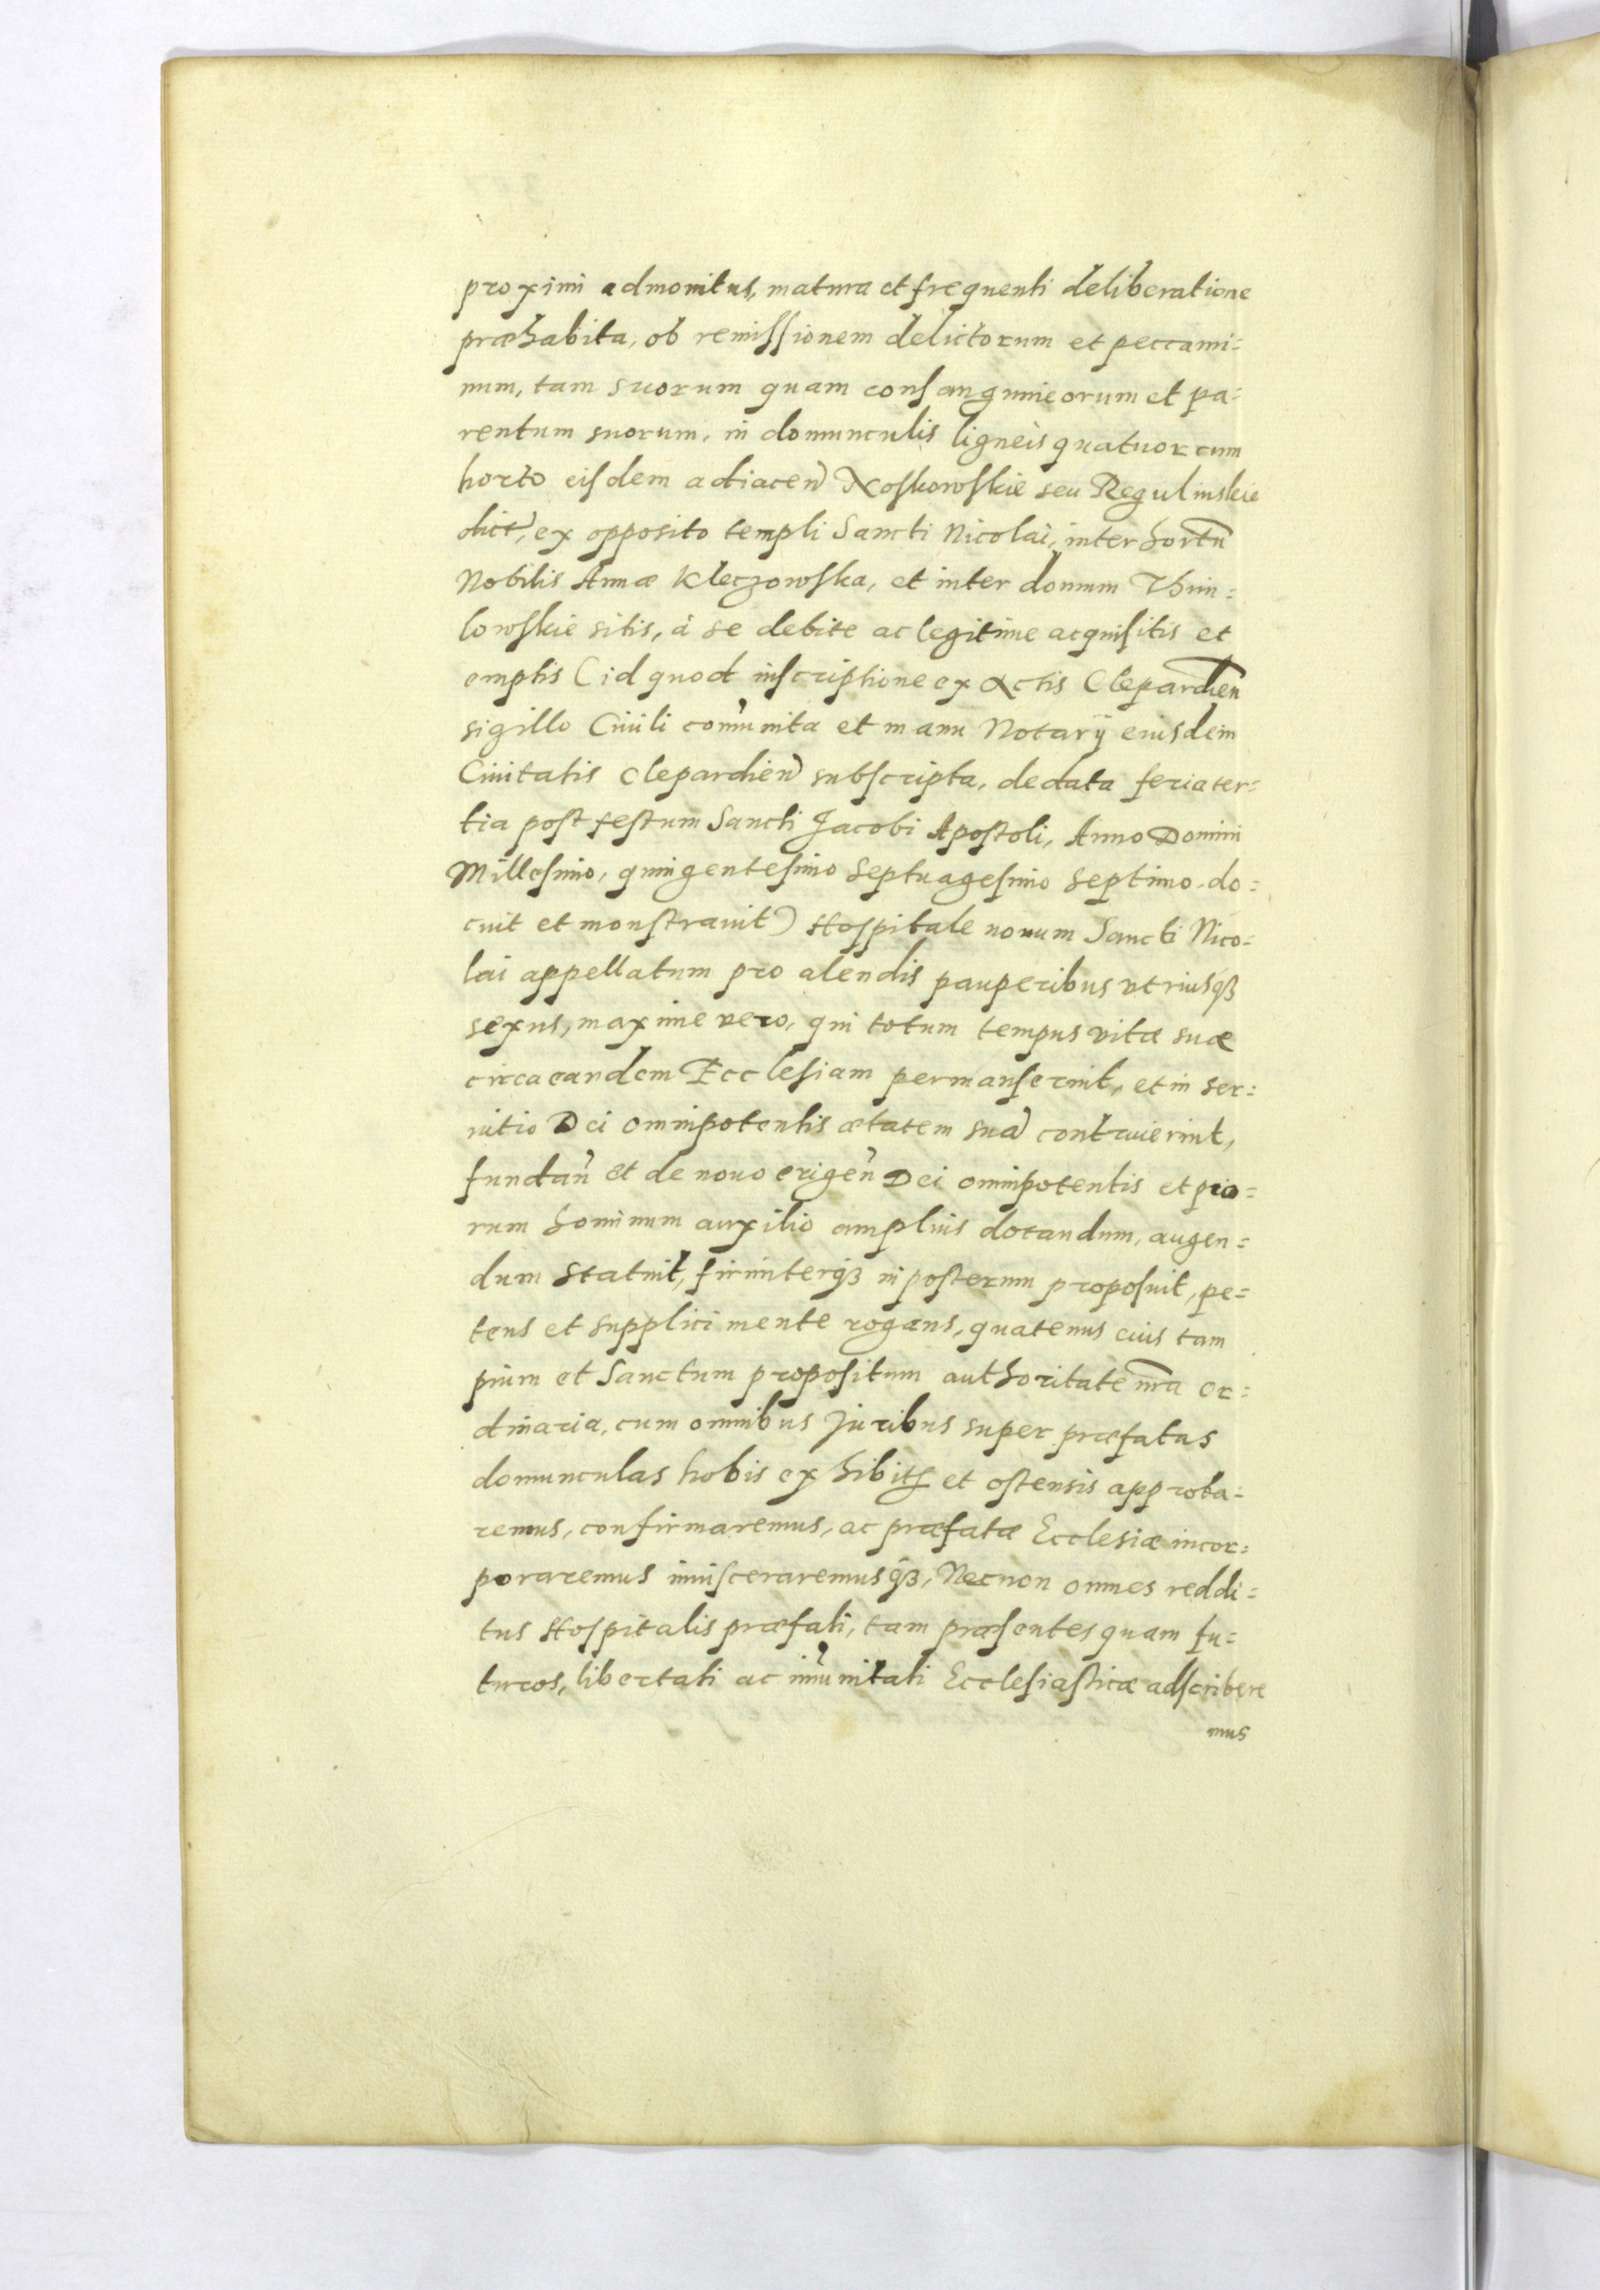 proximi admonitus, matura et frequenti deliberatione
præhabita, ob remissionem delictorum et peccami=
num, tam suorum quam consanguineorum et pa=
rentum suorum, in domunculis ligneis quatuor cum
horto eisdem adiacen Noskowskie seu Regulinskie
dict, ex opposito templi Sancti Nicolai, inter hortū
Nobilis Annæ Kleczowska, et inter domum
lowskie sitis, à se debite ac legitime acquisitis et
emptis (id quod inscriptione ex Actis Clepardien
sigillo Ciuili com̄unita et manu Notarij eiusdem
Ciuitatis Clepardien subscripta, de data feria ter=
tia post festum Sancti Jacobi Apostoli, Anno Domini
Millesimo, quingentesimo septuagesimo septimo, do=
cuit et monstrauit) Hospitale nouum Sancti Nico=
lai appellatum pro alendis pauperibus vtriusq3
sexus, maxime vero, qui totum tempus vitæ suæ
circa eandem Ecclesiam permanserint, et in ser=
uitio Dei omnipotentis ætatem suā contriuerint,
fundan et de nouo erigen Dei omnipotentis et pio=
rum hominum auxilio amplius dotandum, augen=
dum statuit, firmiterq3 in posterum proposuit, pe=
tens et supplici mente rogans, quatenus eius tam
pium et Sanctum propositum authoritate nr̄a or=
dinaria, cum omnibus Juribus super præfatas
domunculas nobis exhibitis et ostensis approba=
remus, confirmaremus, ac præfatæ Ecclesiæ incor=
poraremus inuisceraremusq3, Necnon omnes reddi=
tus Hospitalis præfati, tam præsentes quam fu=
turos, libertati ac im̄unitati Ecclesiasticæ adscribere
mus